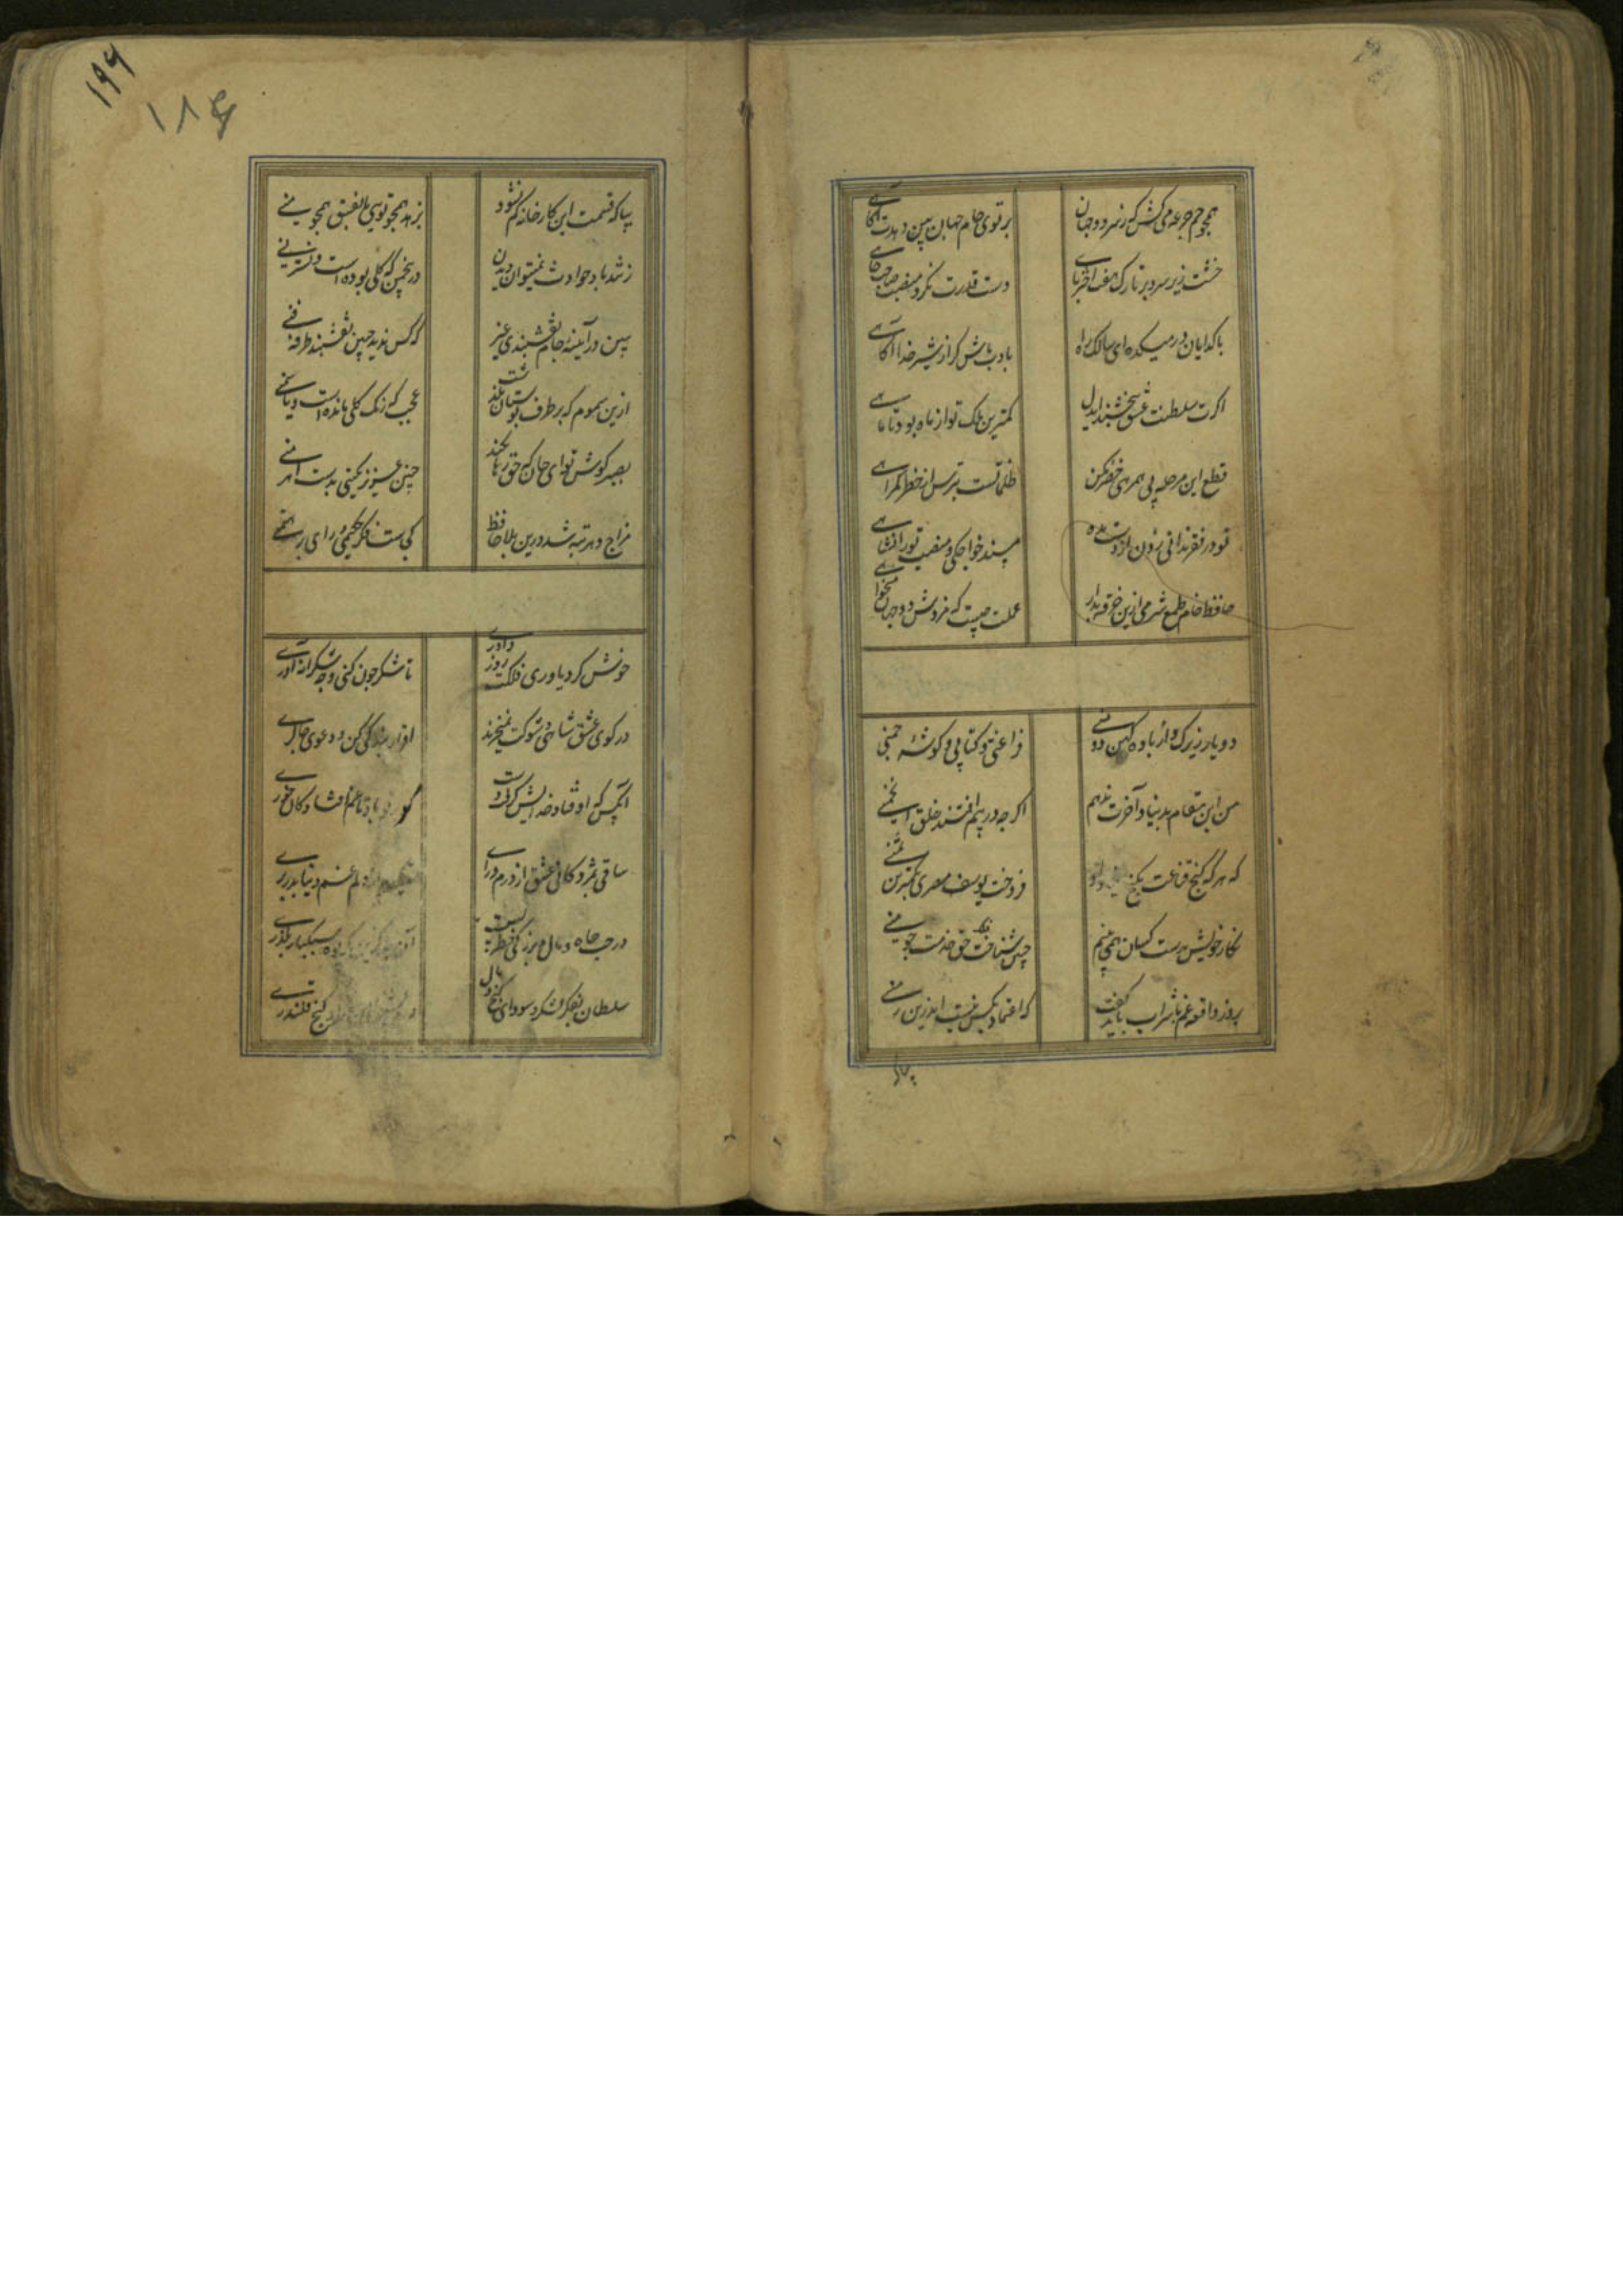 همچو جم جرعه می کش که ز سر دو جهان
پرتوی جام جهان بین دهدت آگاهی
خشت زیر سر و بر تارک هفت اختر پای
دست قدرت نگر و منصب صاحب جاهی
با گدایان در میکده ای سالک راه
بادب باش گر از سر خدا آگاهی
اگرت سلطنت عشق ببخشند ای دل
کمترین ملک تو از ماه بود تا ماهی
قطع این مرحله بی همرهی خضر مکن
ظلماتست بترس از خطر گمراهی
تو در فقر ندانی زدن از دست مده
مسند خواجگی و منصب تورانشاهی
حافظ خام طمع شرمی ازین قصه بدار
عملت چیست که مزدش دو جهان میخواهی
دو یار زیرک و از باده کهن دو منی
فراغتی و کتابی و گوشه چمنی
من این مقام بدنیا و آخرت ندهم
اگر چه در پیم افتند خلق انجمنی
که هر که کنج قناعت بگنج
فروخت یوسف مصری بکمترین ثمنی
نگار خویش بدست کسان همی بینم
چنین شناخت فلک حق خدمت چو منی
بروز واقعه غم با شراب باید گفت
که اعتماد بکس نیست اندرین زمنی
بیا که
۱۹۶
۱۸۶
بیا که قسمت این کارخانه کم نشود
بزهد همچو تویی یا بفسق همچو منی
ز تند باد حوادث نمیتوان دیدن
درین چمن که گلی بوده است و نسترنی
ببین در آینه جام نقشبندی غیب
که کس ندید چنین نقشبند طرفه فنی
ازین سموم که بر طرف بوستان بگذشت
عجب که رنگ گلی مانده است و یاسمنی
بصبر کوش تو ای جان که حق رها نکند
چنین عزیز نگینی بدست اهرمنی
مزاج دهر تبه شد درین بلا حافظ
کجاست فکر حکیمی و رای برهمنی
خوش کرد یاوری فلکت روز داوری
تا شکر چون کنی و چه شکرانه آوری
در کوی عشق شاهی و شوکت نمیخرند
اقرار بندگی کن و دعوی چاکری
آنکس که اوفتاد خدایش گرفت دست
گو بر تو باد تا غم افتادگان خوری
ساقی بمژدگانی عشق از درم درای
دلم غم دنیا بدر بری
در جاه و مال و بزرگی خطر بسیست
سبکبار بگذری
سلطان و فکر لشکر و سودای گنج و مال
کنج قلندری